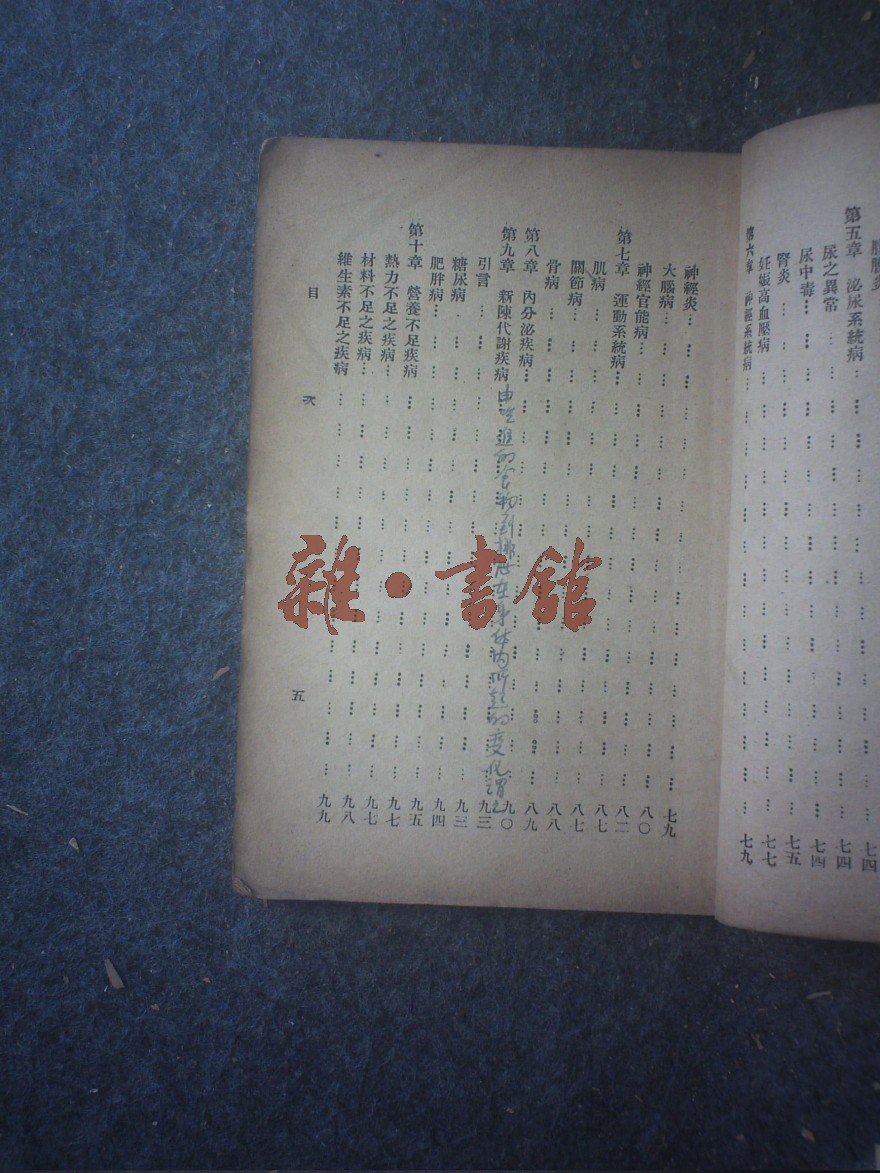 第五章 泌尿系統病 七四
尿之異常 七四
尿中毒 七四
腎炎 七五
妊娠高血壓病 七七
第六章 神經系統病 七九
神經炎 七九
大腦病 八〇
神經官能病 八二
第七章 運動系統病 八七
肌病 八七
關節病 八八
骨病 八九
第八章 內分泌疾病 九〇
第九章 新陳代謝疾病 九三
由吃進的食物到排泄在身体內所起的變化謂之
引言 九三
糖尿病 九四
肥胖病 九五
第十章 營養不足疾病 九七
熱力不足之疾病 九七
材料不足之疾病 九八
維生素不足之疾病 九九
目次 五
雜·書館